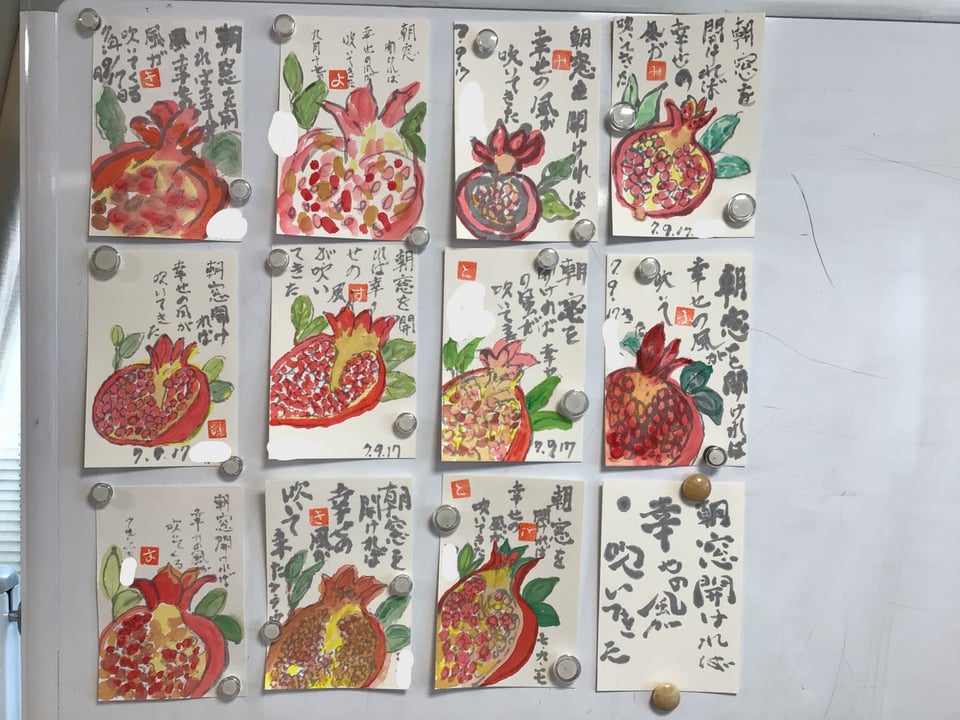 朝窓を開
ければ幸せの
風が
吹いてくる
き
朝窓
開ければ
幸せの風が
吹いてきた
九月十七
よ
朝窓を開ければ
幸せの風が
吹いてきた
み
7.9.17
朝窓を
開ければ
幸せの
風が
吹いてきた
み
7.9.17.
朝窓開け
れば
幸せの風が
吹いてきた
7.9.17
朝窓を開
ければ幸
せの風
が吹い
てきた
す
7.9.17
朝窓を
開ければ幸せ
の風が
吹いて来
と
7.9.17
朝窓を開ければ
幸せの風が
吹いて
きた
ふ
7.9.17
朝窓開ければ
幸せの風が
吹いてくる
す
朝窓を
開ければ
幸せの
風が
吹いて来た
き
朝窓を
開ければ
幸せの
風が
吹いてきた
と
七、九、一七
朝窓開ければ
幸せの風
吹いてきた